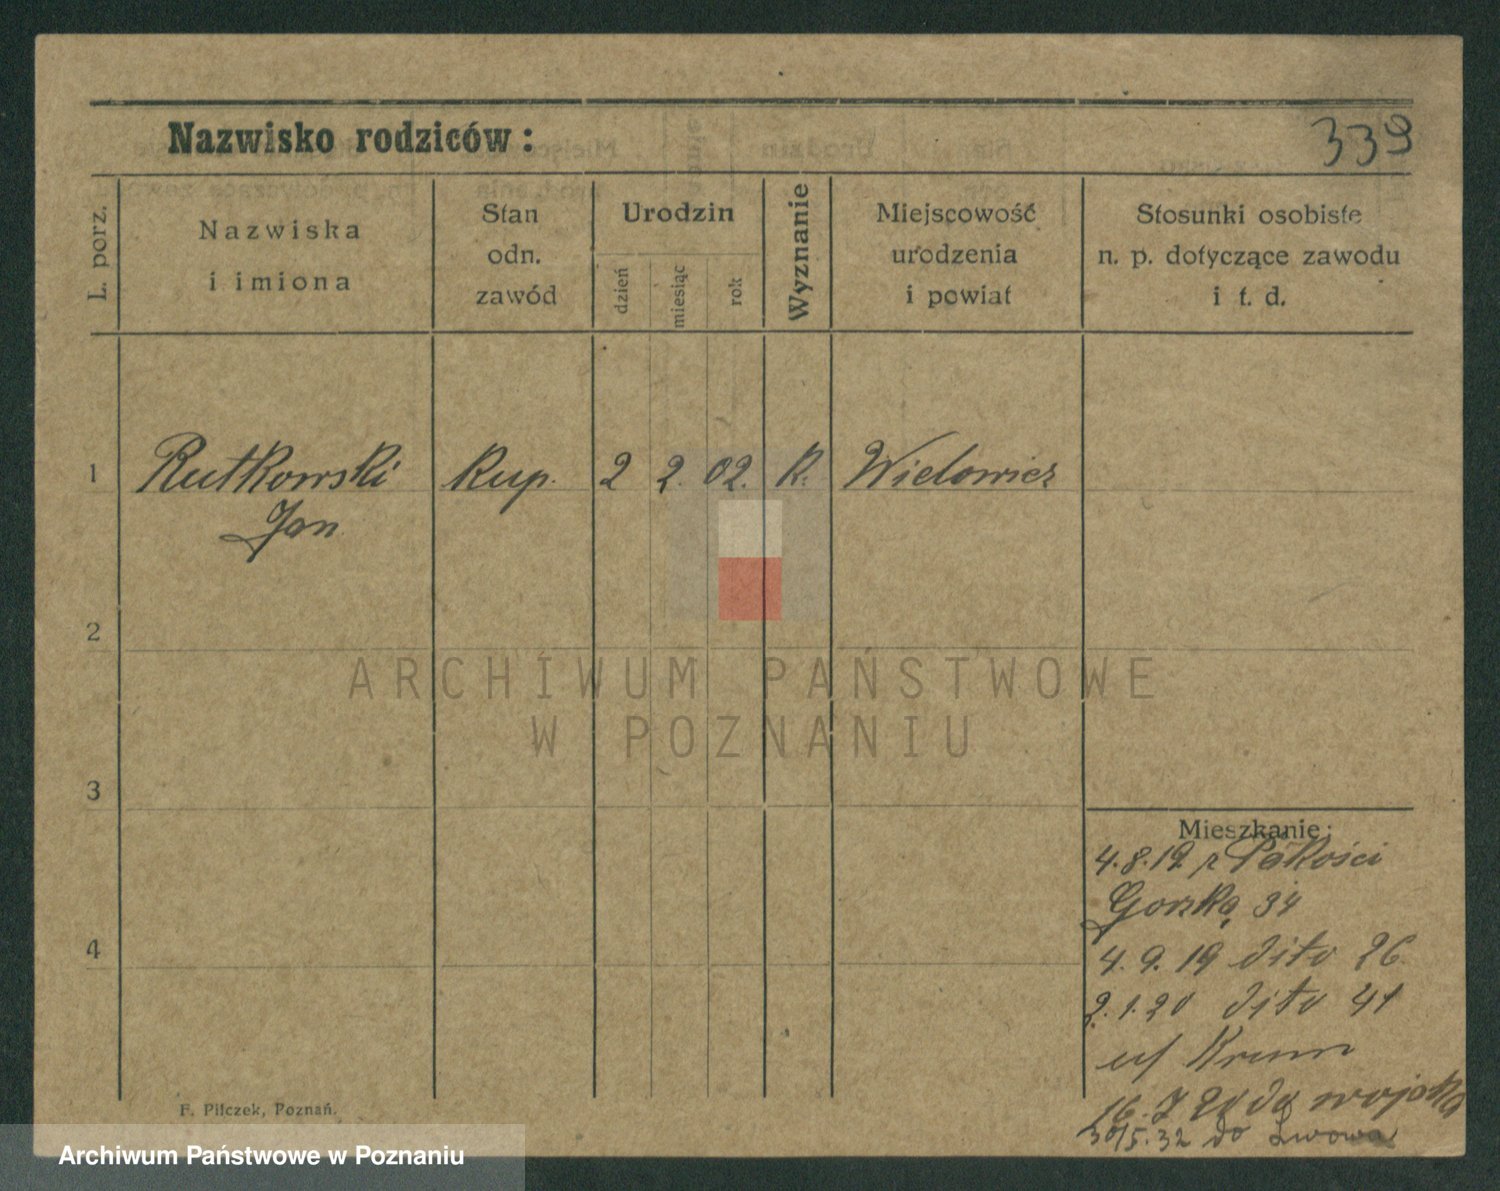 Nazwisko rodziców:
339
L. porz.
Nazwiska
i imiona
Stan
odn.
zawód
Urodzin
dzień
miesiąc
rok
Wyznanie
Miejscowość
urodzenia
i powiat
Stosunki osobiste
n. p. dotyczące zawodu
i t. d.
1 Rutkowski Kup. 2 2. 02. K. Wielowicz
Jan
2
ARCHIWUM PAŃSTWOWE
W POZNANIU
3
Mieszkanie:
4.8.19 z Pakości
Gorzka 34
4
4.9.19 dito 26
2.1.20 dito 41
u/ Krum
16.7 20 do wojska
30/5.32 do Lwowa
F. Pilczek, Poznań.
Archiwum Państwowe w Poznaniu